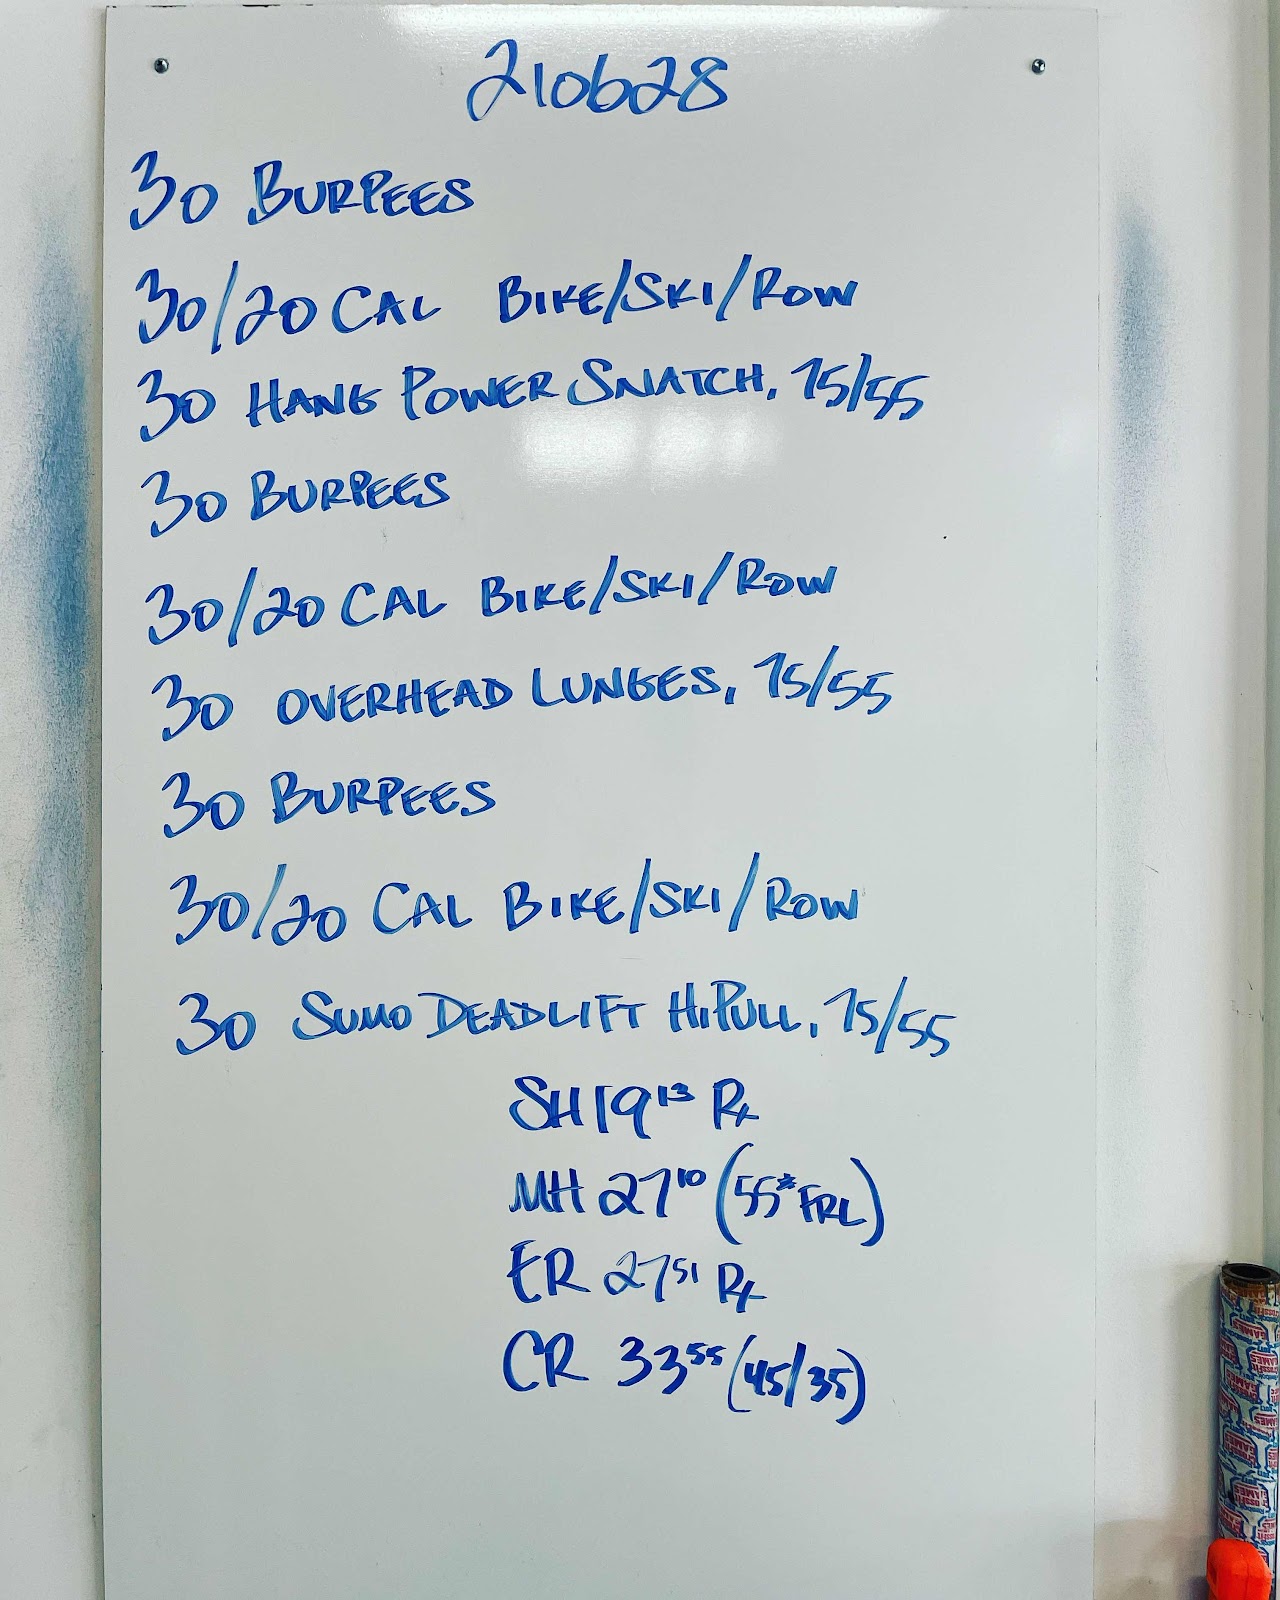 210628
30 BURPEES
30/20 CAL BIKE/SKI/ROW
30 HANG POWER SNATCH, 75/55
30 BURPEES
30/20 CAL BIKE/SKI/ROW
30 OVERHEAD LUNGES, 75/55
30 BURPEES
30/20 CAL BIKE/SKI/ROW
30 SUMO DEADLIFT HIPULL, 75/55
SH 19 13 Rx
MH 27 10 (55# FRL)
ER 27 51 Rx
CR 33 55 (45/35)
GAMES
GAMES